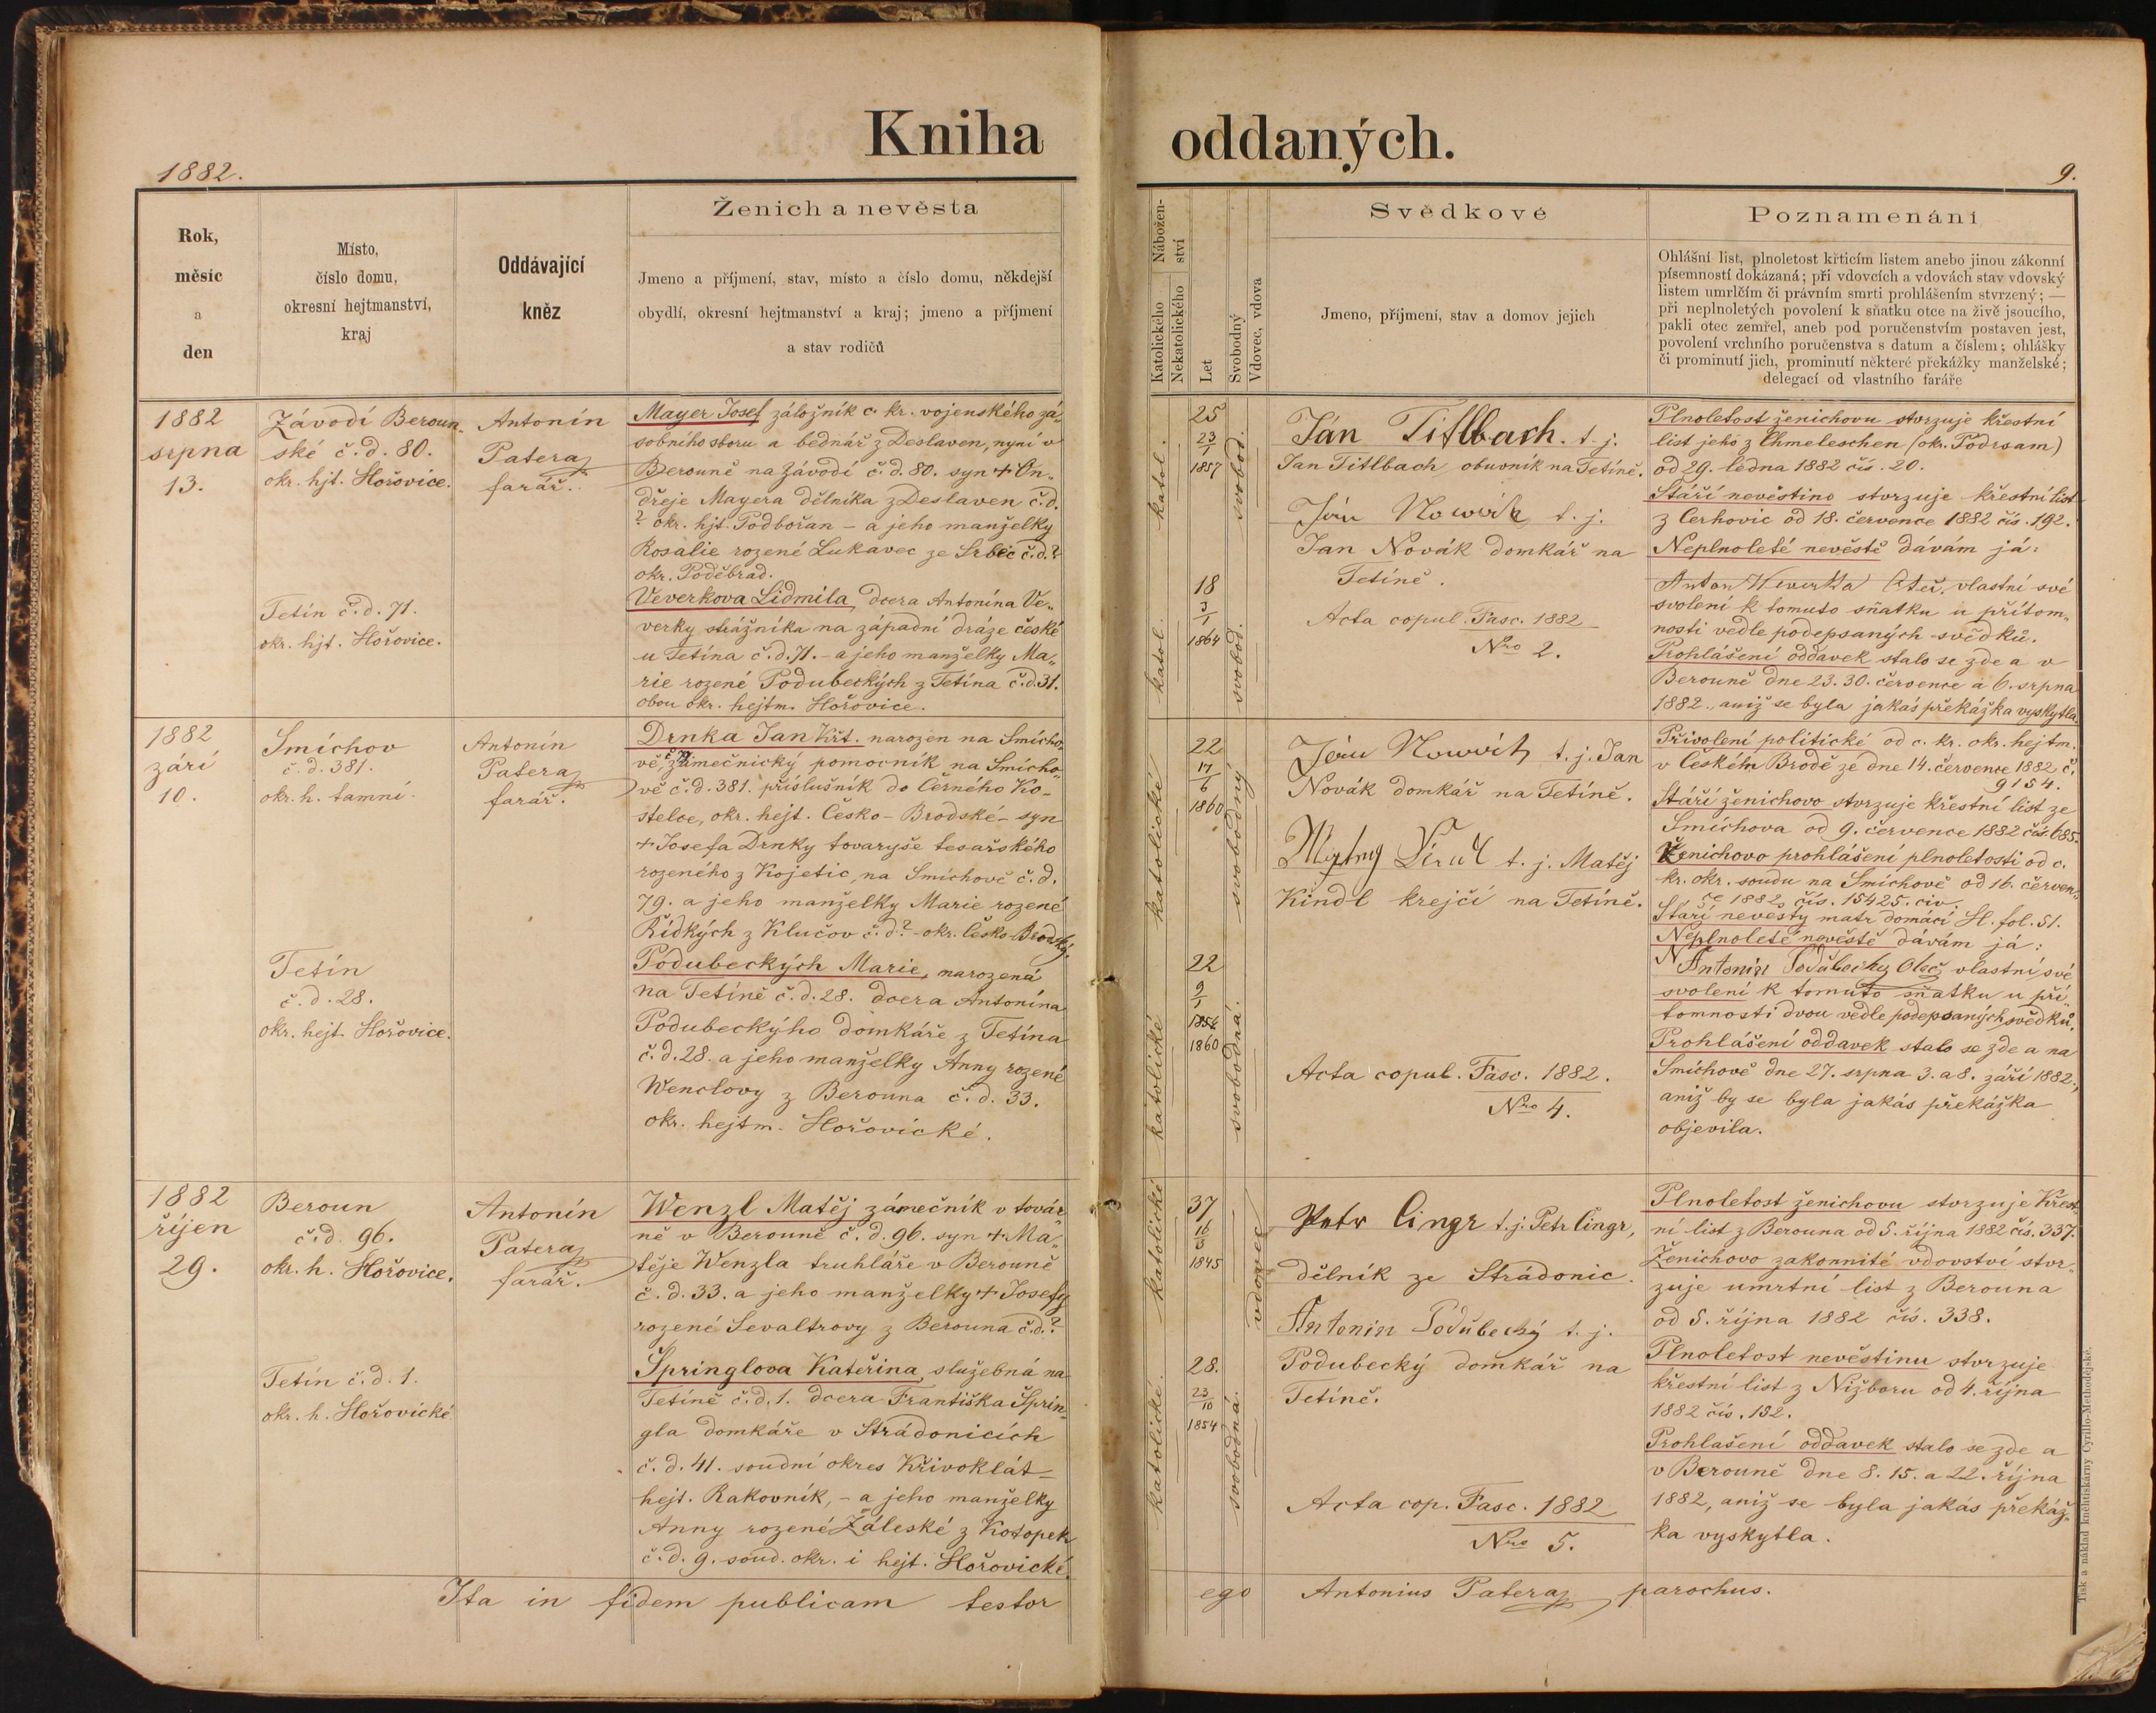 Kniha oddaných.
1882.
9.
Rok,
měsíc
a
den
Místo,
číslo domu,
okresní hejtmanství,
kraj
Oddávající
kněz
Ženich a nevěsta
Jmeno a příjmení, stav, místo a číslo domu, někdejší
obydlí, okresní hejtmanství a kraj; jmeno a příjmení
a stav rodičů
Nábožen-
ství
Katolického
Nekatolického
Let
Svobodný
Vdovec, vdova
Svědkové
Jmeno, příjmení, stav a domov jejich
Poznamenání
Ohlášní list, plnoletost křticím listem anebo jinou zákonní
písemností dokázaná; při vdovcích a vdovách stav vdovský
listem umrlčím či právním smrti prohlášením stvrzený; —
při neplnoletých povolení k sňatku otce na živě jsoucího,
pakli otec zemřel, aneb pod poručenstvím postaven jest,
povolení vrchního poručenstva s datum a číslem; ohlášky
či prominutí jich, prominutí některé překážky manželské;
delegací od vlastního faráře
1882
srpna
13.
Závodí Beroun„
ské č.d. 80.
okr. hjt. Hořovice.
Tetín č.d. 71.
okr. hjt. Hořovice.
Antonín
Patera
farář.
Mayer Josef záložník c. kr. vojenského zá„
sobního sboru a bednář z Deslaven, nyní v
Berouně na Závodí č.d. 80. syn + On„
dřeje Mayera dělníka z Deslaven č.d.
? okr. hjt. Podbořan – a jeho manželky
Rosalie rozené Lukavec ze Srbec č.d.?
okr. Poděbrad.
Veverkova Lidmila, dcera Antonína Ve„
verky strážníka na západní dráze české
u Tetína č.d. 71. – a jeho manželky Ma„
rie rozené Podubeckých z Tetína č.d. 31.
obou okr. hejtm. Hořovice.
katol.
25
23/1
1857
svobod.
katol.
18
3/1
1864
svobod.
Ján Titlbach. t. j.
Jan Titlbach obuvník na Tetíně.
Ján Nowák t. j.
Jan Novák domkář na
Tetíně.
Acta copul. Fasc. 1882
Nro 2.
Plnoletost ženichovu stvrzuje křestní
list jeho z Chmeleschen (okr. Podrsam)
od 29. ledna 1882 čís. 20.
Stáří nevěstino stvrzuje křestní list
z Cerhovic od 18. července 1882 čís. 192.
Neplnoleté nevěstě dávám já:
Anton Wewerka Oteč, vlastní své
svolení k tomuto sňatku u přítom„
nosti vedle podepsaných svědků.
Prohlášení oddavek stalo se zde a v
Berouně dne 23. 30. července a 6. srpna
1882., aniž se byla jakás překážka vyskytla.
1882
září
10.
Smíchov
č.d. 381.
okr. h. tamní.
Tetín
č.d. 28.
okr. hejt. Hořovice.
Antonín
Patera
farář.
Drnka Jan Křt. narozen na Smícho„
vě, zámečnický pomocník na Smícho„
vě č.d. 381. příslušník do Černého Ko-
stelce, okr. hejt. Česko-Brodské – syn
+ Josefa Drnky tovaryše tesařského
rozeného z Kojetic, na Smíchově č.d.
79. a jeho manželky Marie rozené
Řídkých z Klučov č.d.? – okr. Česko-Brodský.
Podubeckých Marie, narozená
na Tetíně č.d. 28. dcera Antonína
Podubeckýho domkáře z Tetína
č.d. 28. a jeho manželky Anny rozené
Wenclovy z Berouna č.d. 33.
okr. hejtm. Hořovické.
katolické
22
17/6
1860
svobodný
katolické
22
9/1
1854
1860
svobodná.
Ján Nowák t. j. Jan
Novák domkář na Tetíně.
t. j. Matěj
Kindl krejčí na Tetíně.
Acta copul. Fasc. 1882.
Nro 4.
Přivolení politické od c. kr. okr. hejtm.
v Českém Brodě ze dne 14. července 1882 č.
9154.
Stáří ženichovo stvrzuje křestní list ze
Smíchova od 9. července 1882 čís. 685.
Ženichovo prohlášení plnoletosti od c.
kr. okr. soudu na Smíchově od 16. červen„
ce 1882, čís. 15425. civ.
Stáří nevěsty matr domácí H. fol. 51.
Neplnoleté nevěstě dávám já:
Antonín Podubecky Oteč vlastní své
svolení k tomuto sňatku u pří„
tomnosti dvou vedle podepsaných svědků.
Prohlášení oddavek stalo se zde a na
Smíchově dne 27. srpna 3. a 8. září 1882.,
aniž by se byla jakás překážka
objevila.
1882
říjen
29.
Beroun
č.d. 96.
okr. h. Hořovice.
Tetín č.d. 1.
okr. h. Hořovické
Antonín
Patera
farář.
Wenzl Matěj zámečník v továr„
ně v Berouně č.d. 96. syn + Ma„
těje Wenzla truhláře v Berouně
č.d. 33. a jeho manželky + Josefy
rozené Sevaltrovy z Berouna č.d.?
Špringlova Kateřina, služebná na
Tetíně č.d. 1. dcera Františka Šprin„
gla domkáře v Strádonicích
č.d. 41. soudní okres Křivoklát –
hejt. Rakovník, – a jeho manželky
Anny rozené Záleské z Kotopek
č.d. 9. soud. okr. i hejt. Hořovické.
katolické
37
16/8
1845
vdovec
katolické.
28.
23/10
1854
svobodná.
Petr Cingr t. j. Petr Cingr,
dělník ze Strádonic.
Antonín Podubecký t. j.
Podubecký domkář na
Tetíně.
Acta cop. Fasc. 1882
Nro 5.
Plnoletost ženichovu stvrzuje Křest„
ní list z Berouna od 5. října 1882 čís. 337.
Ženichovo zakonnité vdovství stvr„
zuje umrtní list z Berouna
od 5. října 1882 čís. 338.
Plnoletost nevěstinu stvrzuje
křestní list z Nižboru od 4. října
1882 čís. 132.
Prohlašení oddavek stalo se zde a
v Berouně dne 8. 15. a 22. října
1882, aniž se byla jakás překáž„
ka vyskytla.
Ita in fidem publicam testor ego Antonius Patera parochus.
Tisk a náklad knihtiskárny Cyrillo-Methodějské.